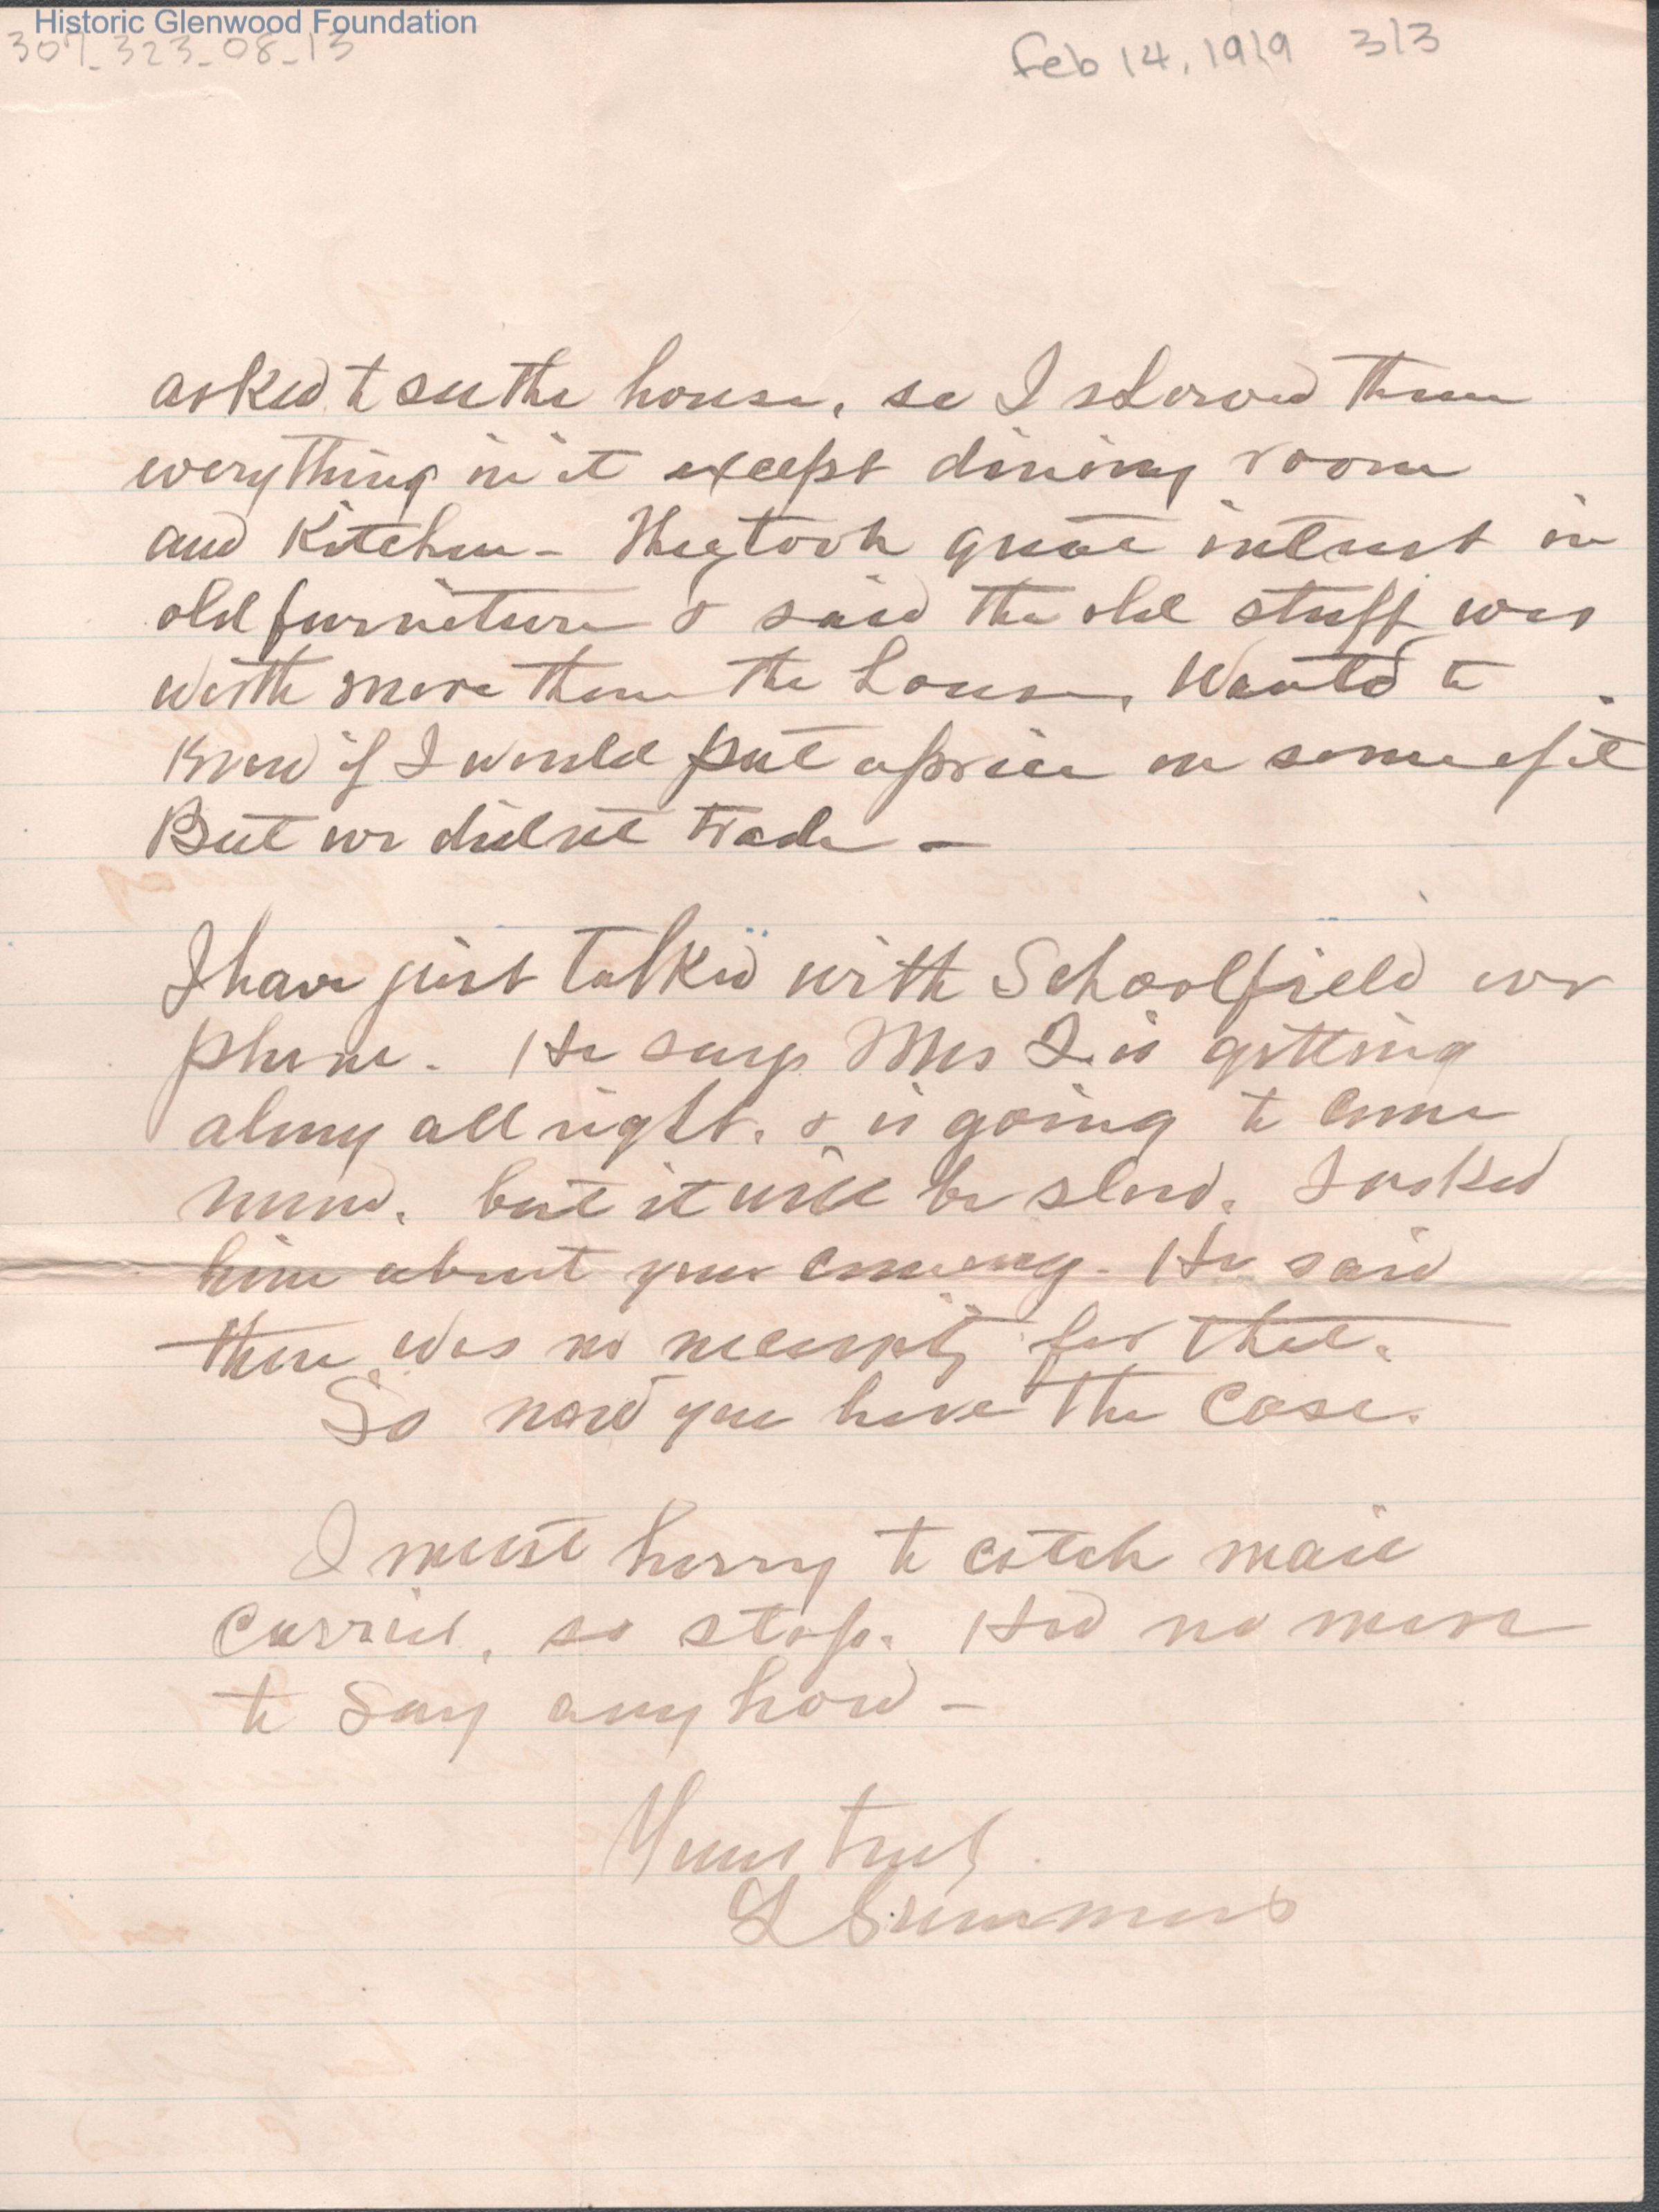 Historic Glenwood Foundation
307_323_08_13
Feb 14, 1919 3/3
asked to see the house, so I showed them
everything in it except dining room
and Kitchen - They took great interest in
old furniture & said the old stuff was
worth more than the house, Wanted to
know if I would put a price on some of it
But we didn't trade -
I have just talked with Schoolfield over
phone. He says Mrs is getting
along all right. & is going to come
round. but it will be slow. I asked
him about your coming. He said
there was no necessity for that.
So now you have the case.
I must hurry to catch mail
carrier, so stop. Had no more
to say anyhow -
Yours truly
L Summers